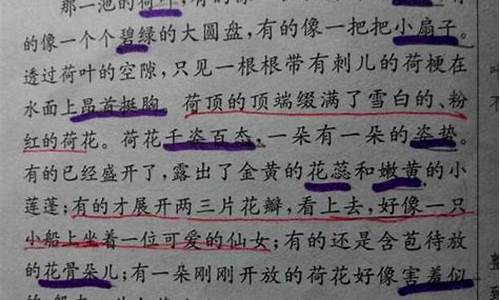 那一池的荷叶，有的像
的像一个个碧绿的大圆盘，有的像一把把小扇子。
透过荷叶的空隙，只见一根根带有刺儿的荷梗在
水面上昂首挺胸。荷顶的顶端缀满了雪白的、粉
红的荷花。荷花千姿百态，一朵有一朵的姿势。
有的已经盛开了，露出了金黄的花蕊和嫩黄的小
莲蓬；有的才展开两三片花瓣，看上去，好像一只
小船上坐着一位可爱的仙女；有的还是含苞待放
的花骨朵儿；有一朵刚刚开放的荷花好像害羞似